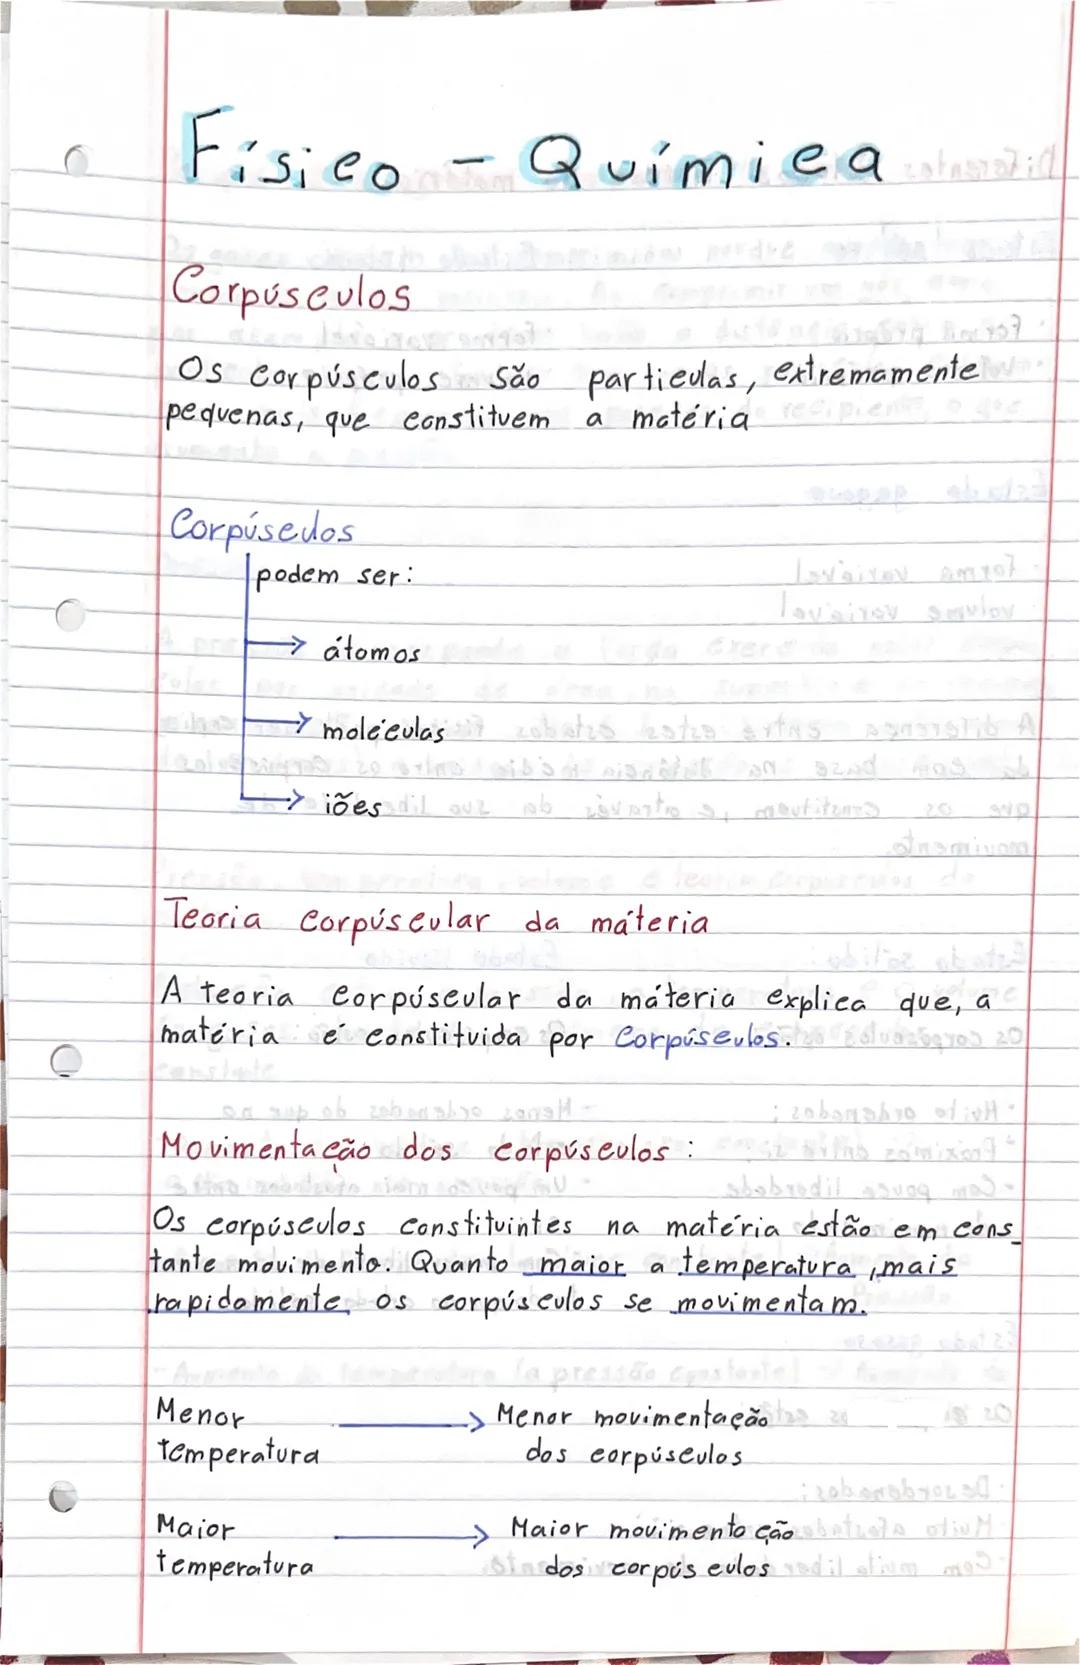 Físico - Química
Corpúsculos
Os corpúsculos são partículas, extremamente
pequenas, que constituem a matéria
Corpúsculos
podem ser:
→ átomos
→ moléculas
→ iões
Teoria corpúscular da máteria
A teoria corpúscular da máteria explica que, a
matéria é constituida por Corpúsculos.
Movimentação dos corpúsculos :
Os corpúsculos constituintes na matéria estão em cons_
tante movimento. Quanto maior a temperatura, mais
rapidamente, os corpúsculos se movimentam.
Menor → Menor movimentação
temperatura dos corpúsculos
Maior → Maior movimentação
temperatura dos corpúsculos